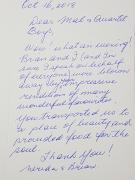 Oct 16, 2018
Dear Mat & Quartet
Boys,
Wow! what an evening!
Brian and I (and I'm
sure I speak on behalf
of everyone) were blown
away by your creative
rendition of many
wonderful favourites.
You transported us to
a place of beauty and
provided food for the
soul.
Thank You!
& Brian